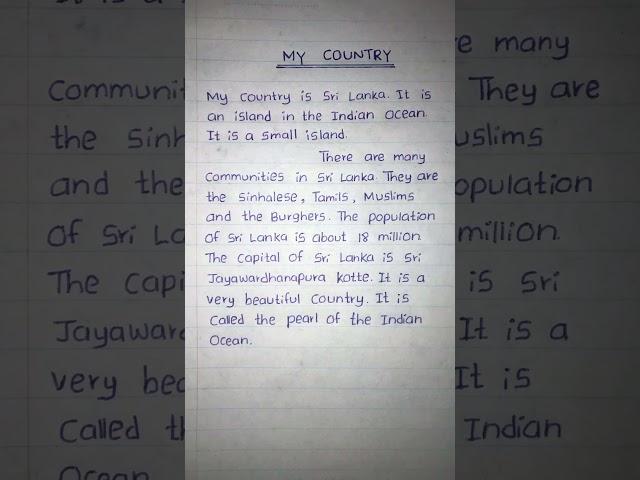 MY COUNTRY
My Country is Sri Lanka. It is
an island in the Indian Ocean.
It is a small island.
There are many
Communities in Sri Lanka. They are
the Sinhalese, Tamils, Muslims
and the Burghers. The population
of Sri Lanka is about 18 million.
The Capital of Sri Lanka is Sri
Jayawardhanapura kotte. It is a
very beautiful Country. It is
Called the pearl of the Indian
Ocean.